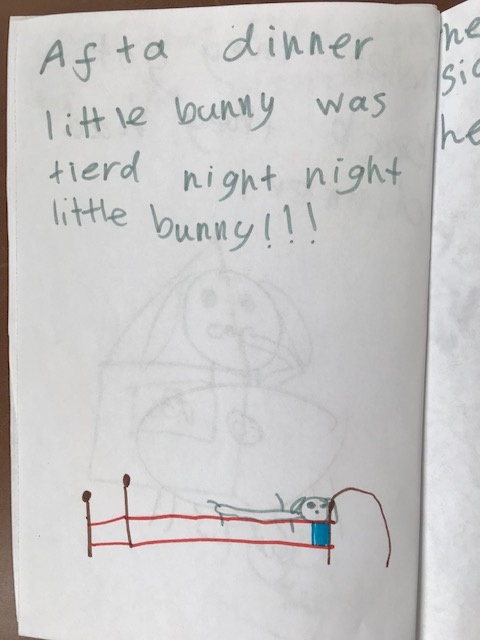 Afta dinner
little bunny was
tierd night night
little bunny!!!
he